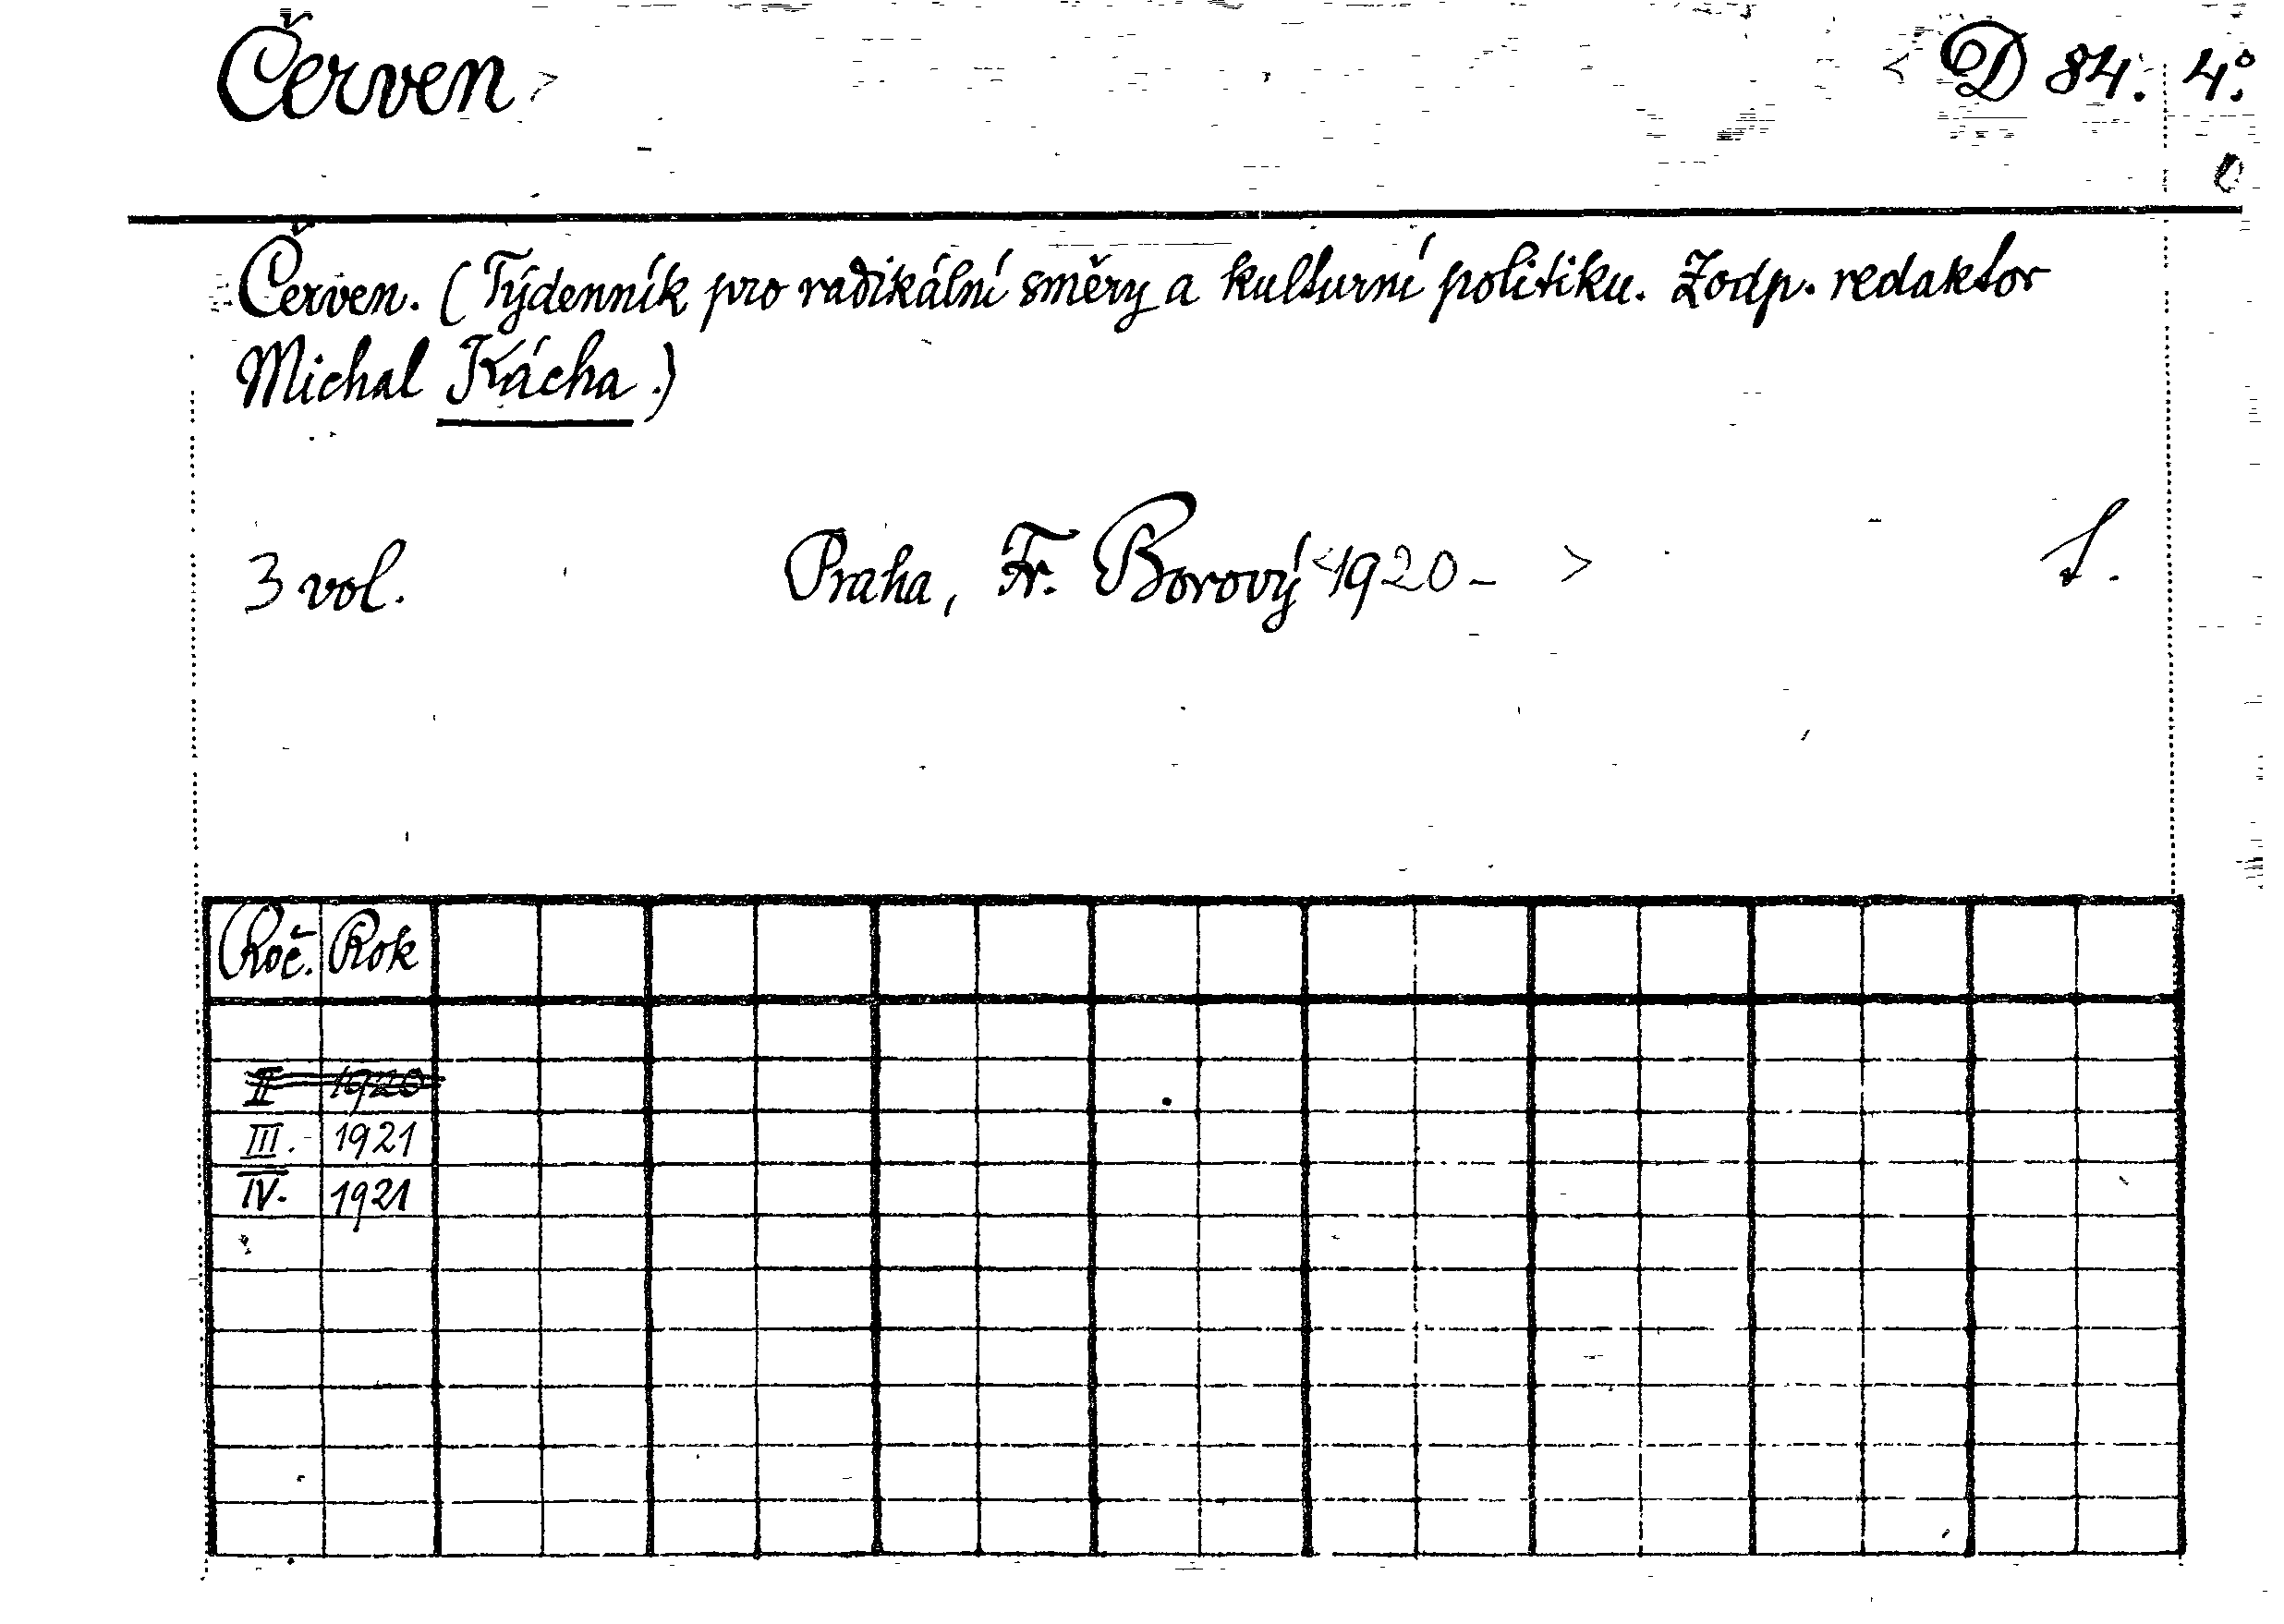 Červen > < D 84. 4.°
Červen. (Týdenník pro radikální směry a kulturní politiku. Zodp. redaktor
Michal Kácha.)
3 vol. Praha, Fr. Borový <1920- >
Roč. Rok
II 1920
III. 1921
IV. 1921